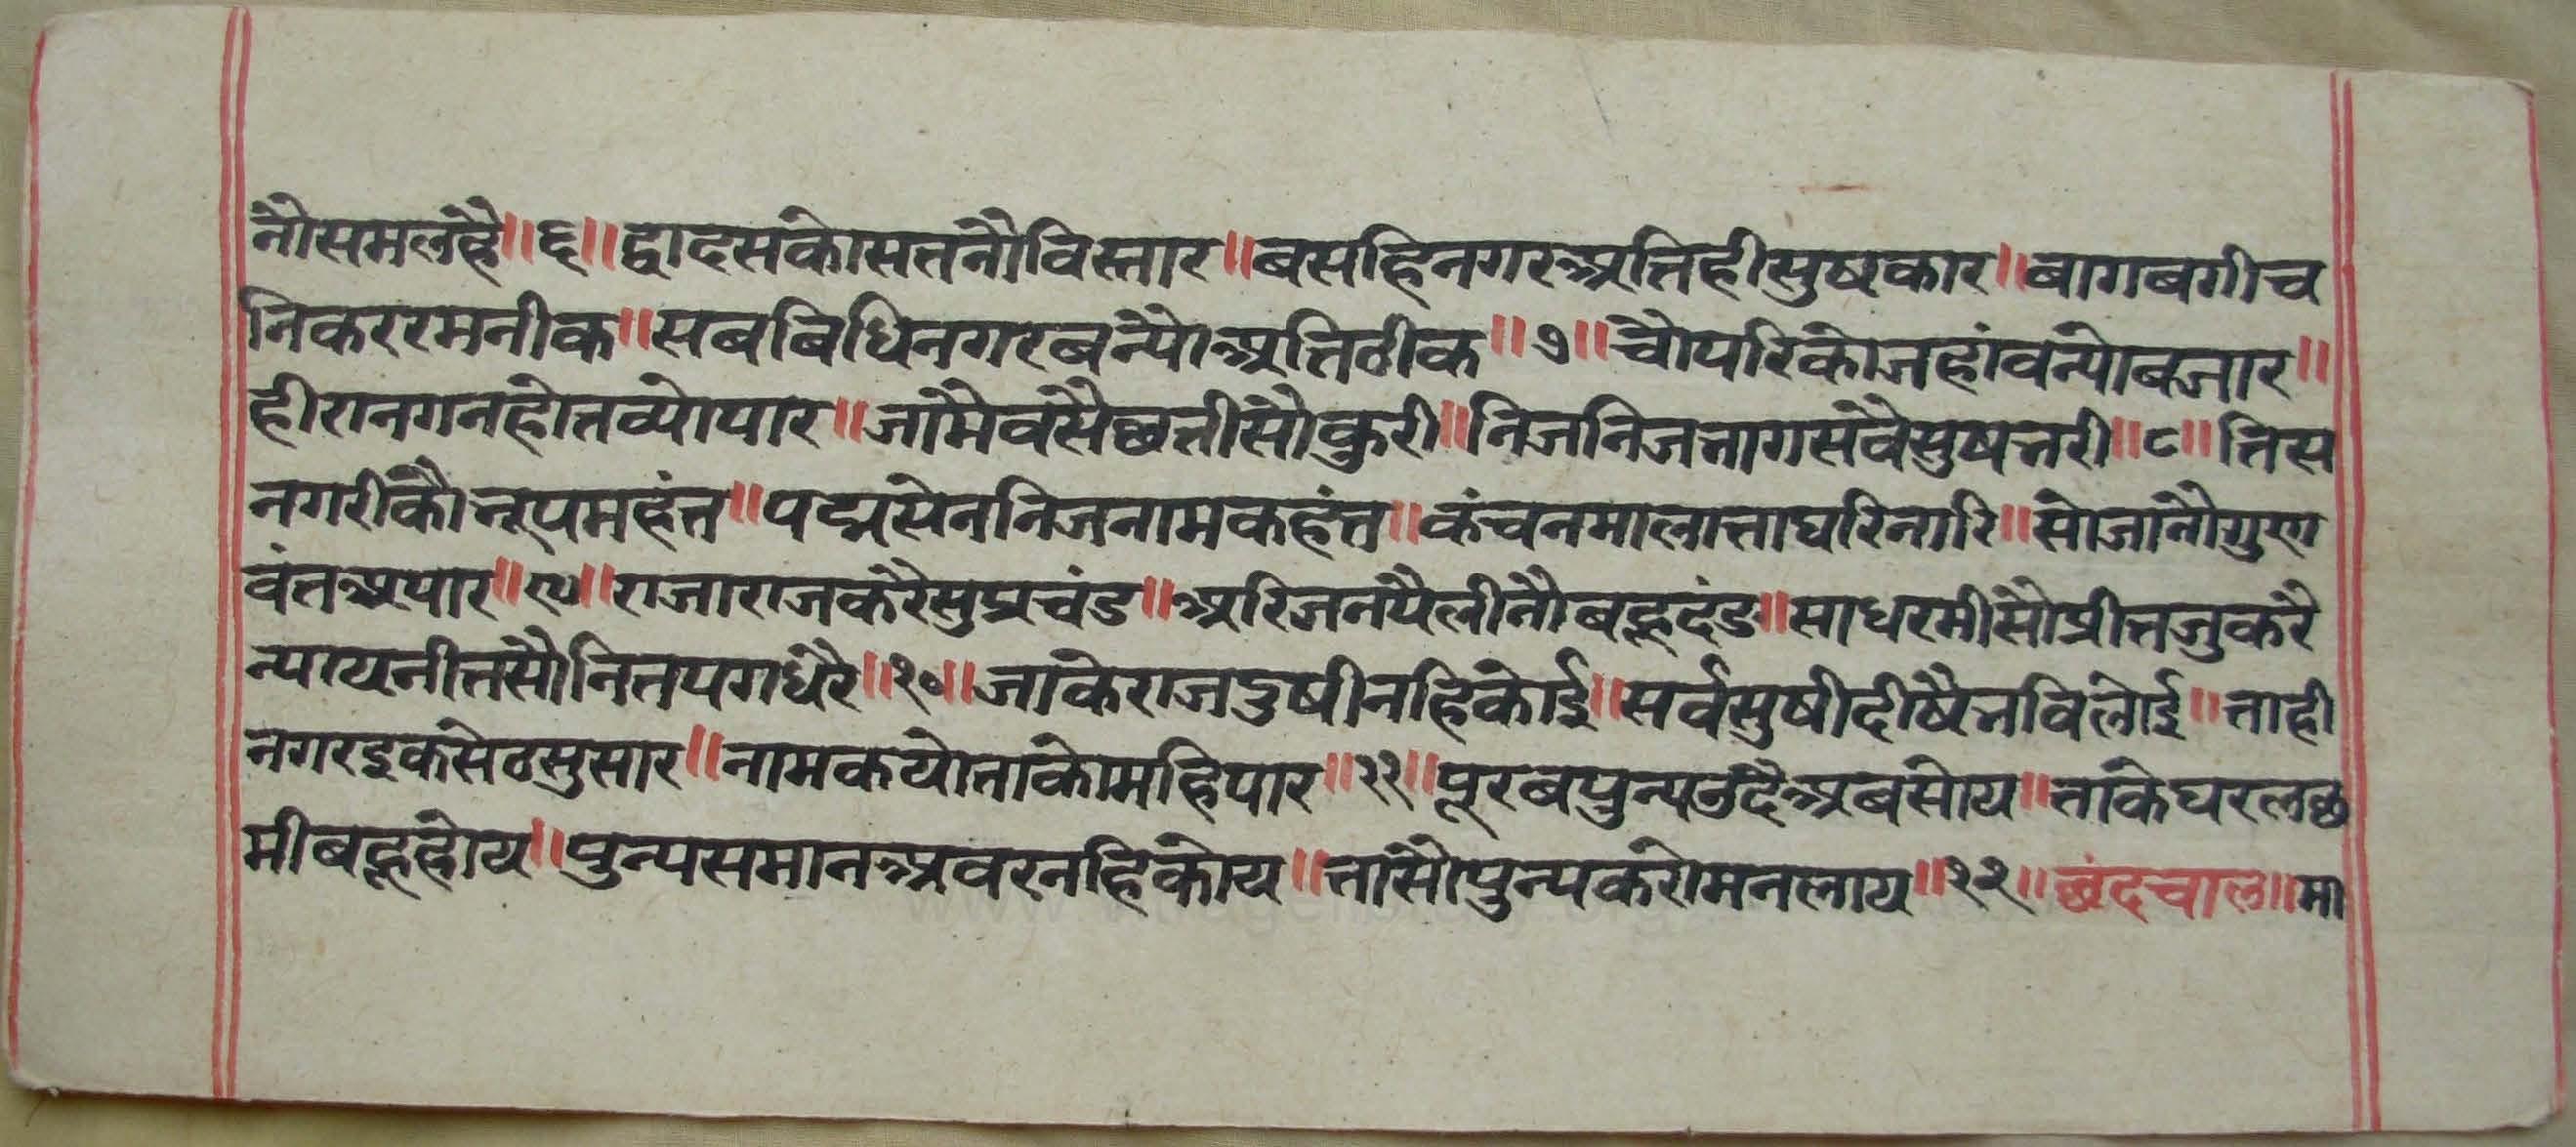 नौसमलहै॥६॥द्वादसकोसतनौविस्तार॥बसहिनगरअतिहीसुषकार॥बागबगीच
निकररमनीक॥सबबिधिनगरबन्योअतिठीक॥७॥चौपरिकोजहांवन्योबजार॥
हीरानगनहोतव्योपार॥जामैवसैछत्तीसौकुरी॥निजनिजत्तागसवैसुषत्तरी॥८॥तिस
नगरीकौनृपमहंत॥पद्मसेननिजनामकहंत॥कंचनमालात्ताघरिनारि॥सोजानौगुण
वंतअपार॥९॥राजाराजकरैसुप्रचंड॥अरिजनपैलीनौबहूदंड॥साधरमीसौप्रीतजुकरै
न्यायनीतसौनितपगधरै॥१०॥जाकेराजदुषीनहिकोई॥सर्वसुषीदीषैनविलोई॥ताही
नगरइकसेठसुसार॥नामकयोताकोमहिपार॥११॥पूरबपुन्यउदैअबसोय॥ताकेघरलछ
मीबहूहोय॥पुन्यसमानअवरनहिकोय॥तासौपुन्यकरोमनलाय॥१२॥छंदचाल॥मा